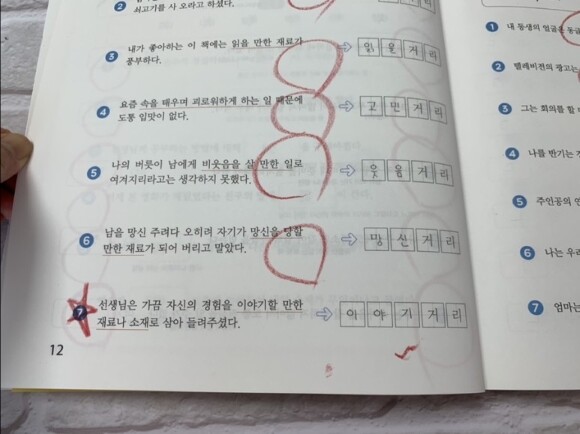 2
쇠고기를 사 오라고 하셨다.
3 내가 좋아하는 이 책에는 읽을 만한 재료가
풍부하다.
읽 을 거 리
4 요즘 속을 태우며 괴로워하게 하는 일 때문에
도통 입맛이 없다.
고 민 거 리
5 나의 버릇이 남에게 비웃음을 살 만한 일로
여겨지리라고는 생각하지 못했다.
웃 음 거 리
6 남을 망신 주려다 오히려 자기가 망신을 당할
만한 재료가 되어 버리고 말았다.
망 신 거 리
7 선생님은 가끔 자신의 경험을 이야기할 만한
재료나 소재로 삼아 들려주셨다.
이 야 기 거 리
12
1 내 동생의 얼굴은
2 텔레비전의 광고는
3 그는 회의를 할
4 나를 반기는
5 주인공의
6 나는 우리
7 엄마는